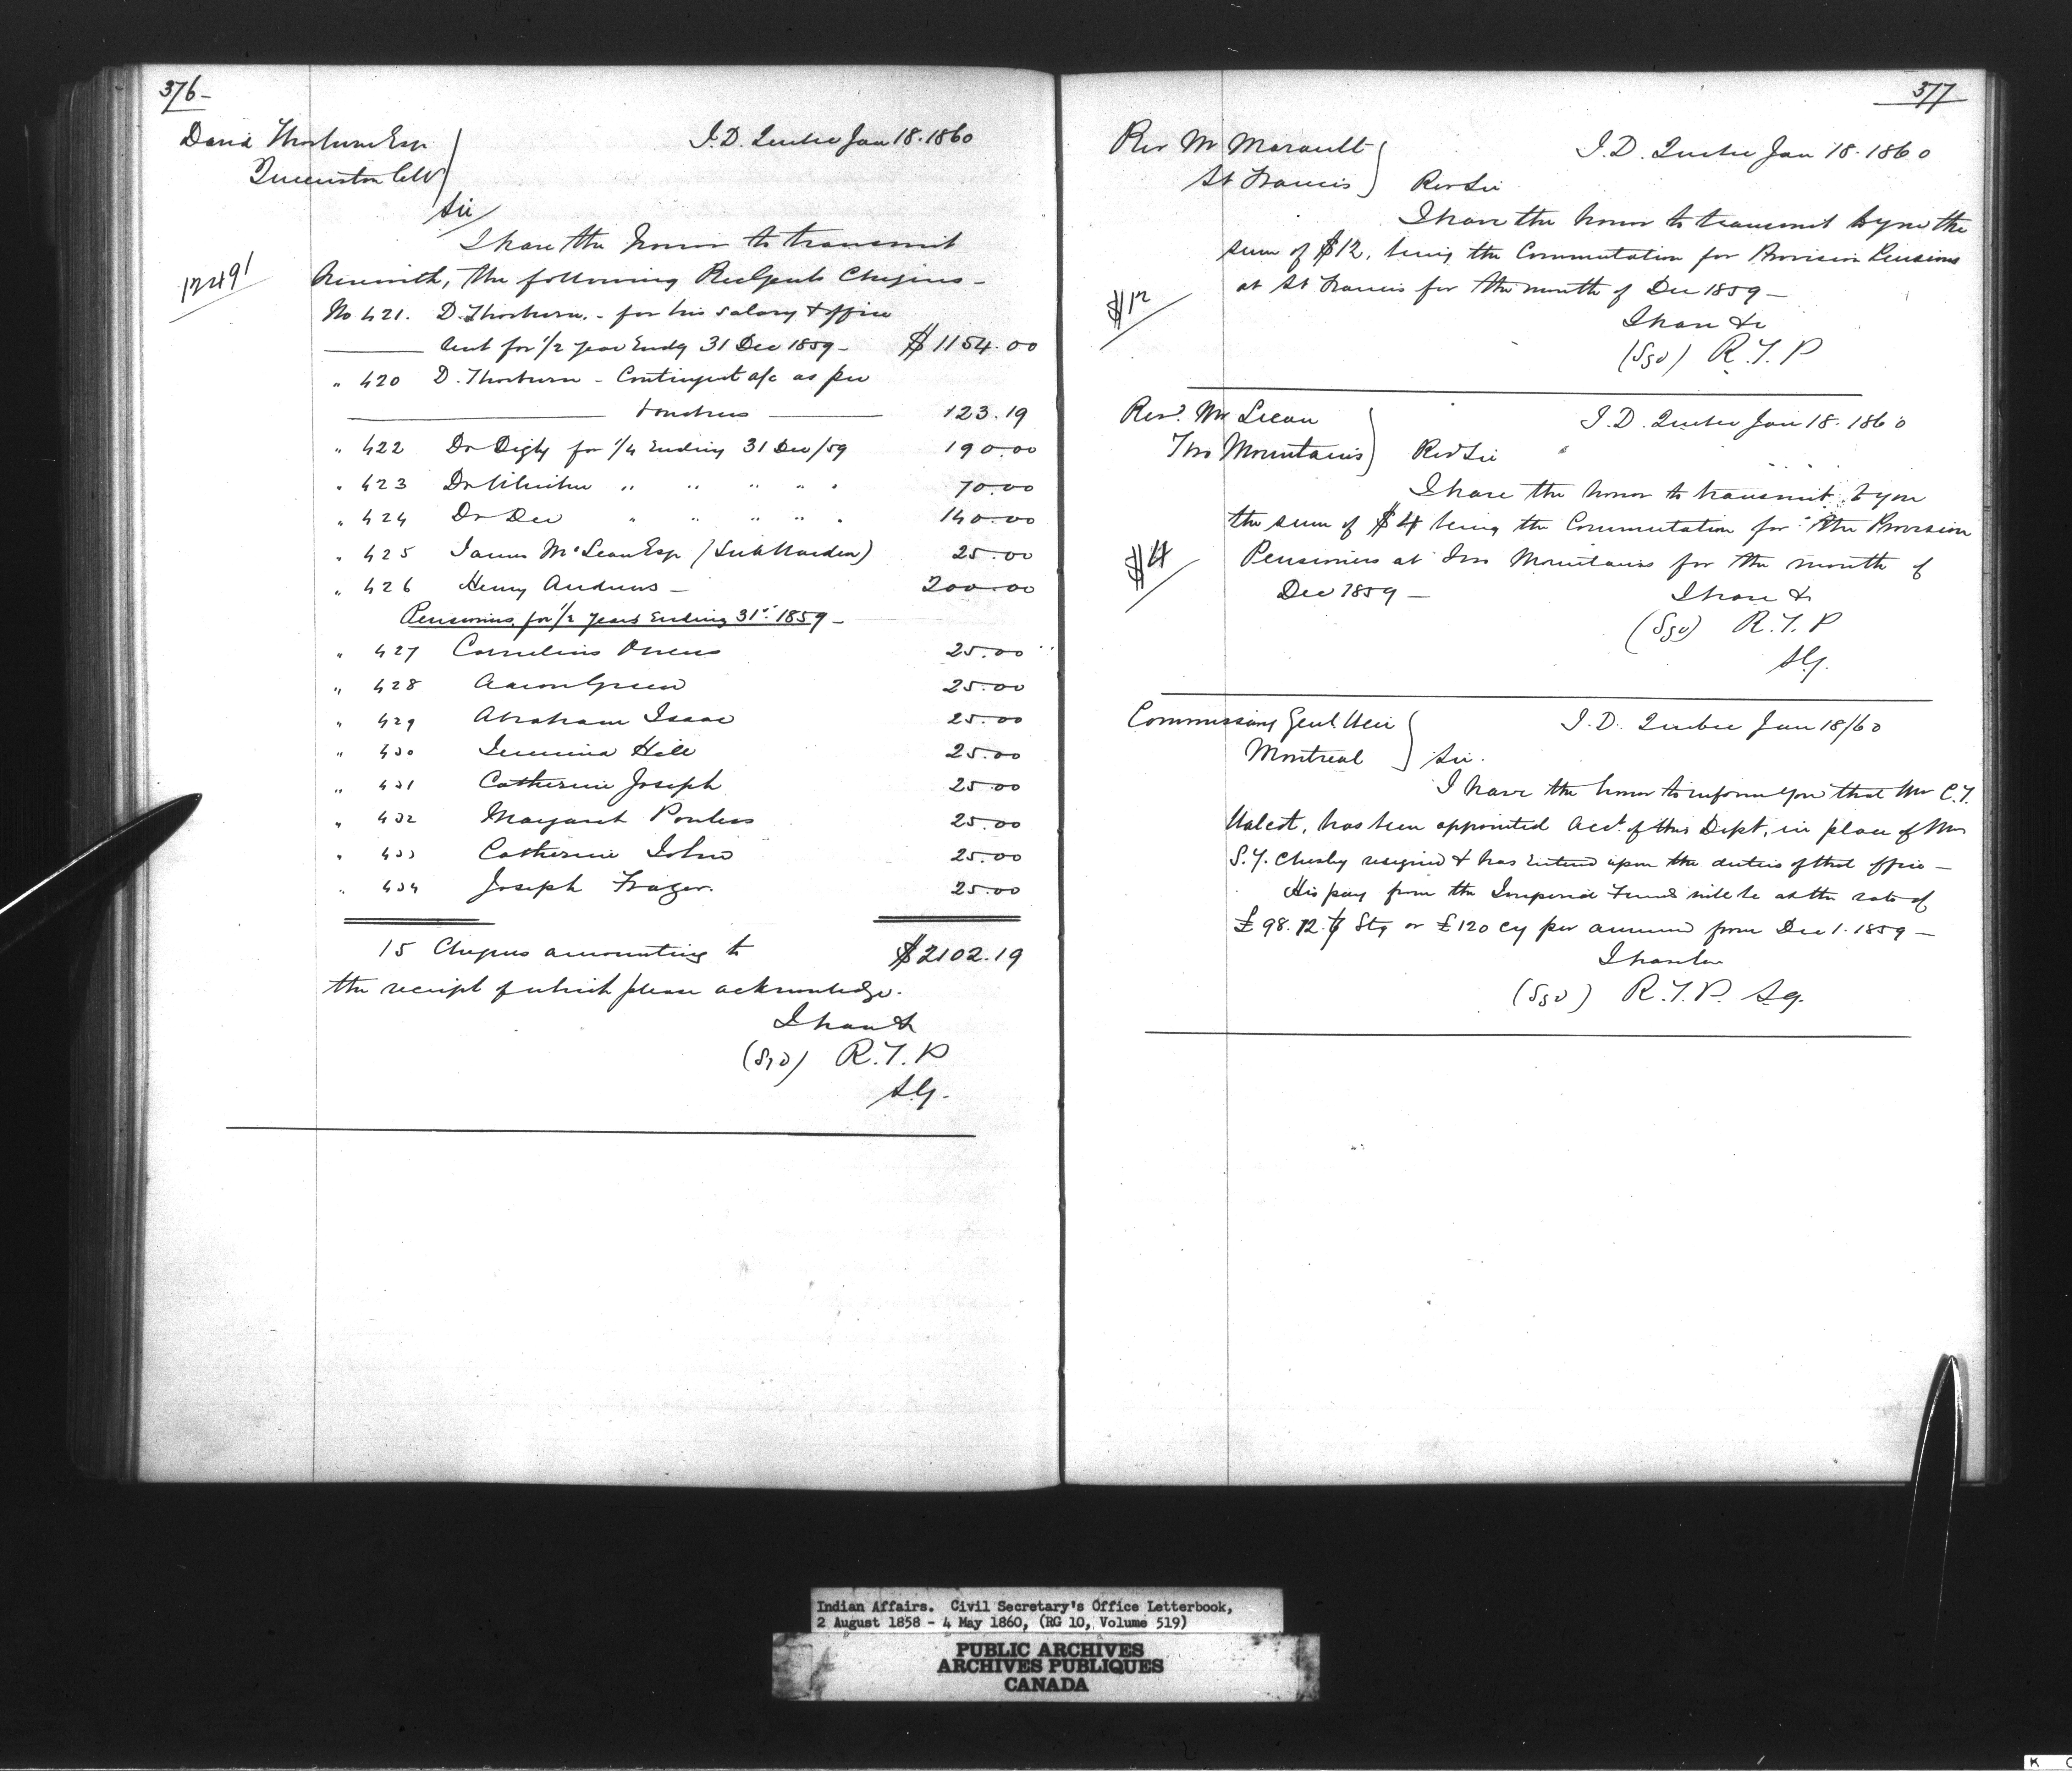 376-
David Thorburn Esqr
Queenston C.W.
I.D. Quebec Jan 18. 1860
Sir
I have the honor to transmit
12491
herewith, the following Recpts Cheques -
No 421. D. Thorburn. - for his salary & office
rent for 1/2 year Endg 31 Dec 1859 - $1154.00
" 420 D. Thorburn - Contingent a/c as per
vouchers 123.19
" 422 Dr Digby for 1/4 Ending 31 Dec/59 190.00
" 423 Dr " " " " " 70.00
" 424 Dr Dee " " " " " 140.00
" 425 James McLean Esqr (Sub Warden) 25.00
" 426 Henry Andrews - 200.00
Pensioners for 1/2 years Ending 31st 1859 -
" 427 Cornelius 25.00
" 428 Aaron Green 25.00
" 429 Abraham Isaac 25.00
" 430 Jemima Hill 25.00
" 431 Catherine Joseph 25.00
" 432 Margaret Powless 25.00
" 433 Catherine John 25.00
" 434 Joseph Frazer. 25.00
15 Cheques amounting to $2102.19
the receipt of which please acknowledge.
I have &
(Sgd) R.T.P
S.G.
377
Rev Mr Marault
St Francis
I.D. Quebec Jan 18. 1860
Rev Sir
I have the honor to transmit to you the
sum of $12, being the Commutation for Provision Pensions
at St Francis for the month of Dec 1859 -
$12
I have &c
(Sgd) R.T.P
Revd. Mr
Two Mountains
I.D. Quebec Jan 18. 1860
Revd Sir
I have the honor to transmit to you
the sum of $4 being the Commutation for the Provision
$4
Pensioners at Two Mountains for the month of
Dec 1859 -
I have &
(Sgd) R.T.P
S.G.
Commissary Genl. Weir
Montreal
I.D. Quebec Jan 18/60
Sir.
I have the honor to inform you that Mr C.T.
Walcot, has been appointed Acct. of this Dept, in place of Mr
S.Y. Chesley resigned & has entered upon the duties of that office -
His pay from the Imperial Funds will be at the rate of
£98.12.7 Stg or £120 Cy per annum from Dec 1. 1859 -
I have &c
(Sgd) R.T.P. S.G.
Indian Affairs. Civil Secretary's Office Letterbook,
2 August 1858 - 4 May 1860, (RG 10, Volume 519)
PUBLIC ARCHIVES
ARCHIVES PUBLIQUES
CANADA